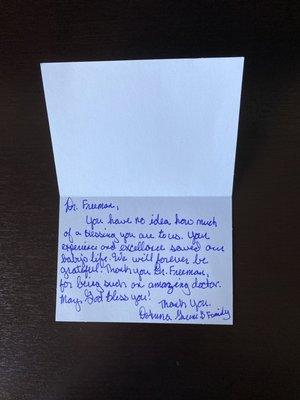 Dr. Freeman,
You have no idea how much
of a blessing you are to us. Your
experience and excellence saved our
baby's life. We will forever be
grateful. Thank you Dr. Freeman,
for being such an amazing doctor.
May God bless you!
Thank You.
& Family